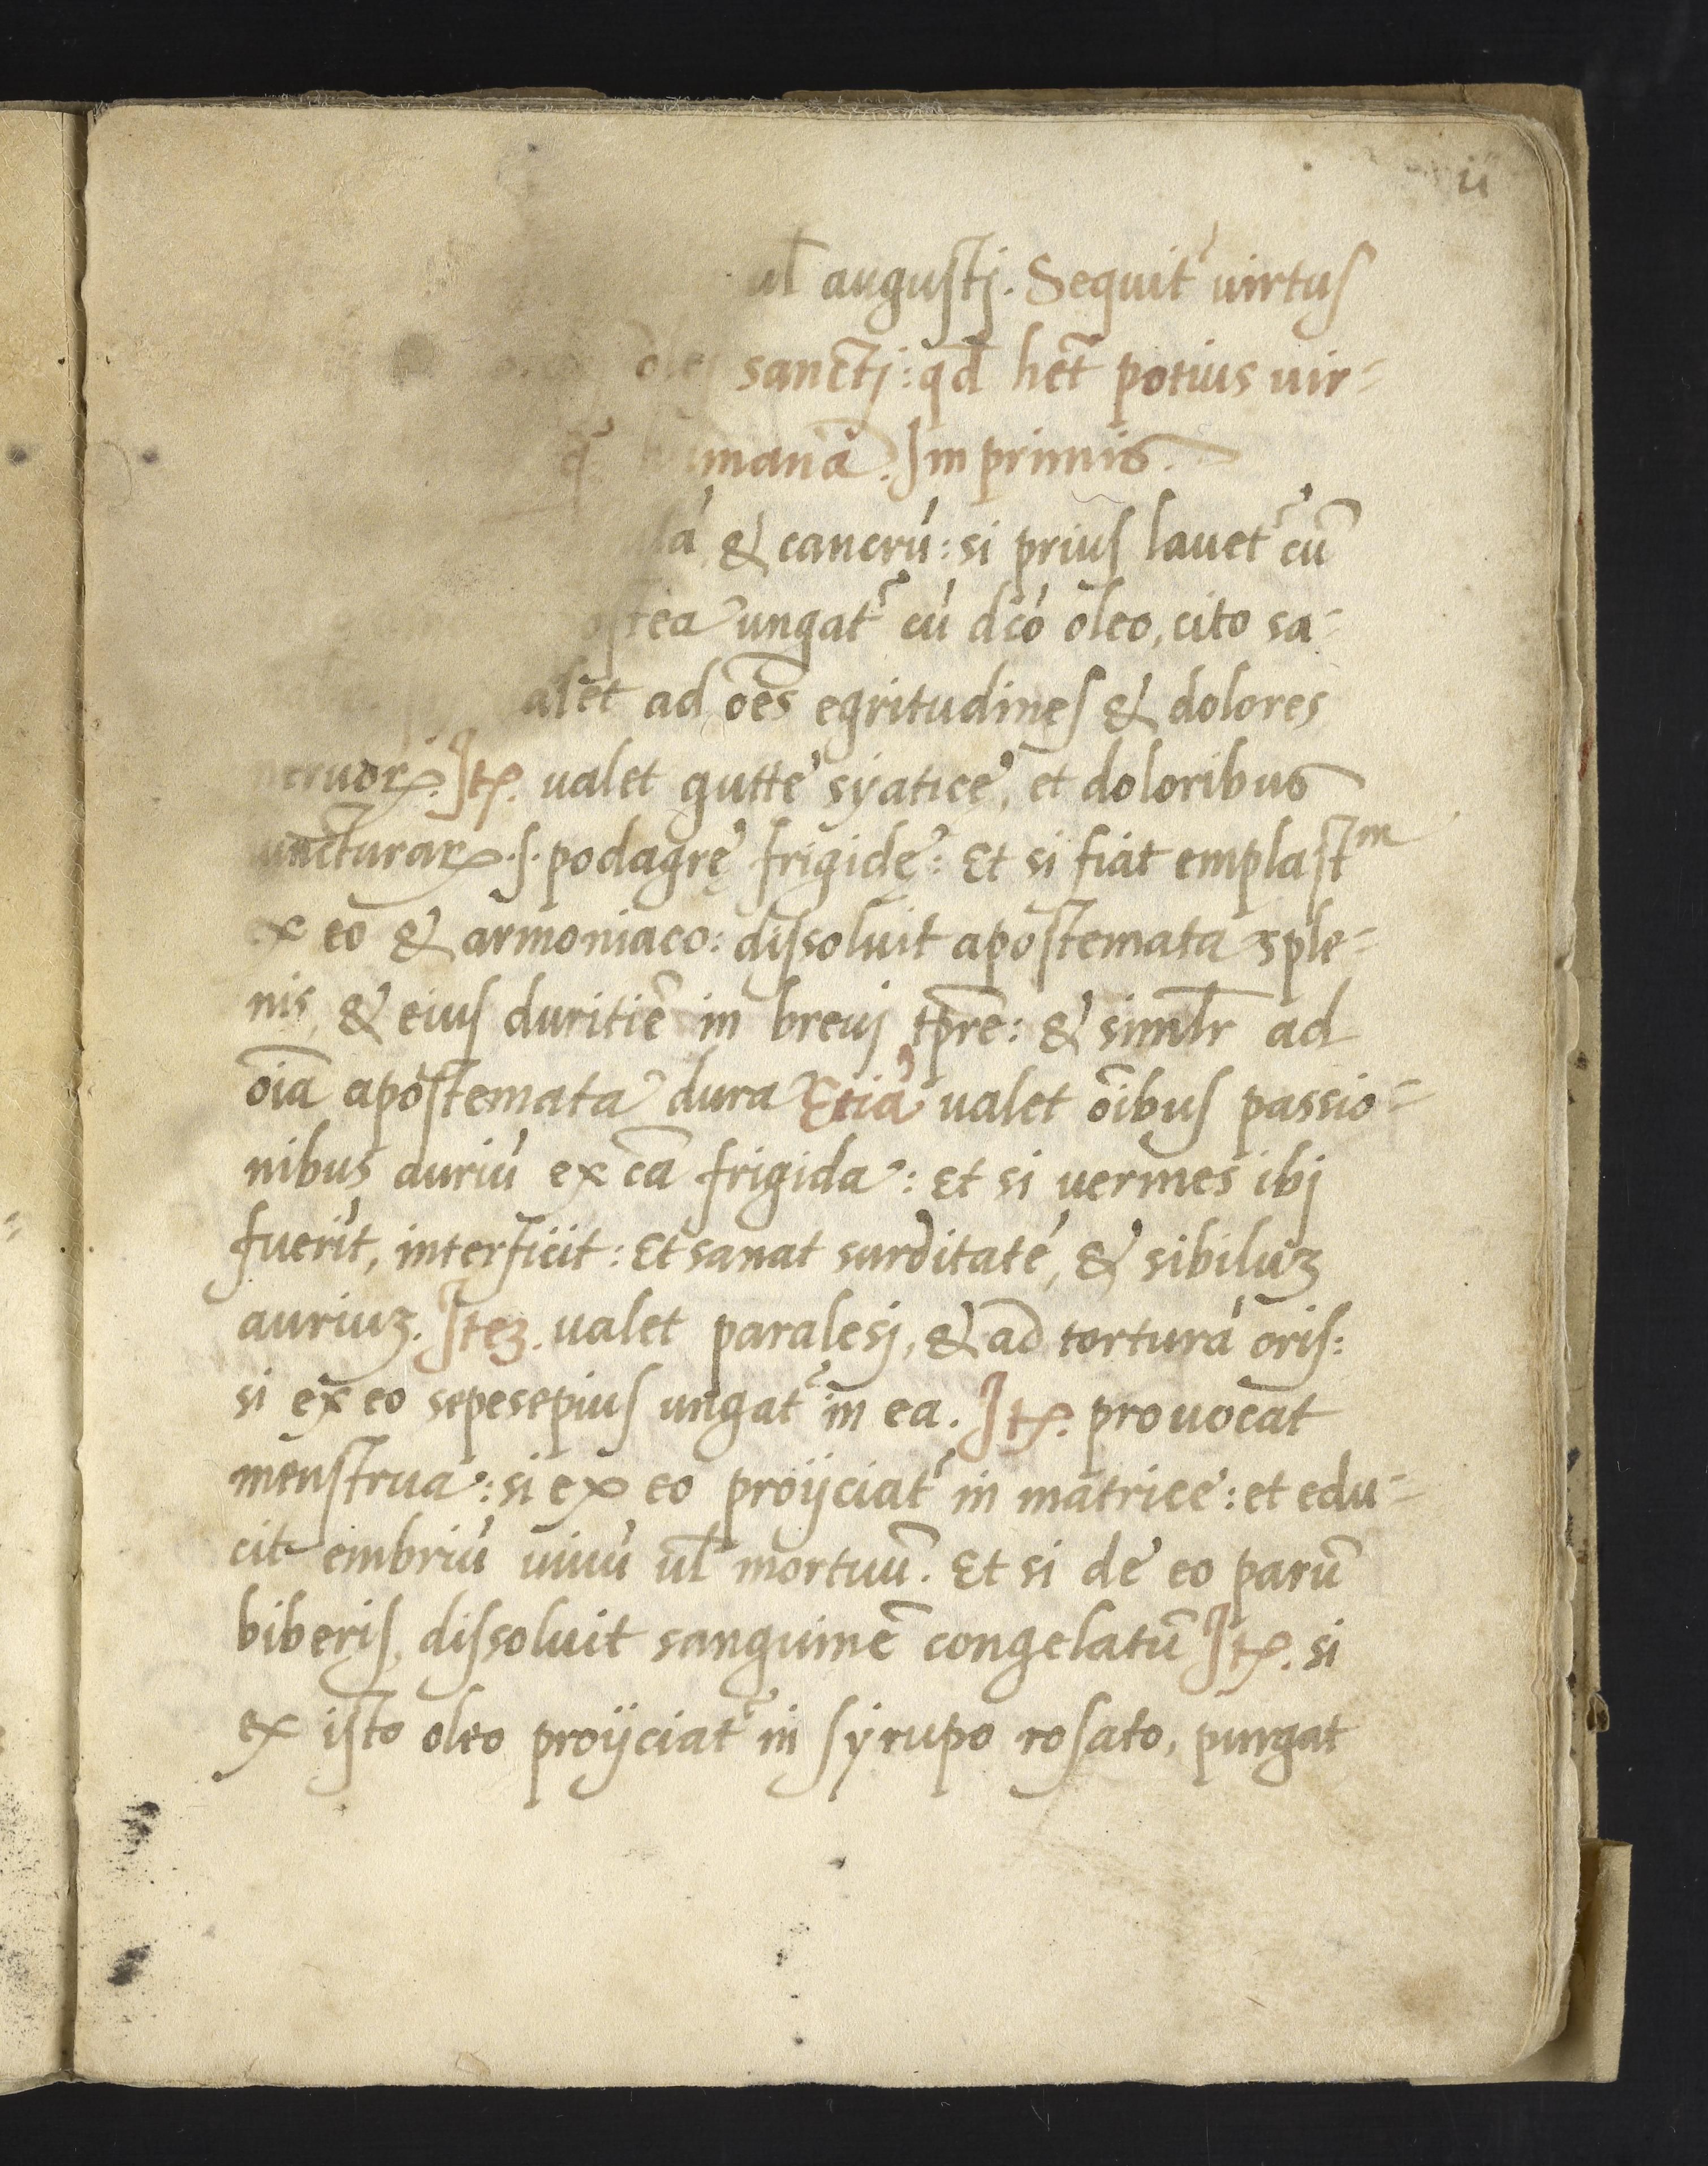 ii
ul̄ augustj. Sequit᷑ uirtus
olej sanctj: qd̄ het̄ potius uir-
q̄ humanā. Imprimis.
& cancrū: si prius lauet᷑ cū
ostea ungat᷑ cū dc̄o oleo, cito sa-
alet ad oēs egritudines & dolores
neruorꝝ. Itꝫ. ualet gutte syatice, et doloribus
iuncturarꝝ .s. podagrę frigidę: Et si fiat emplastᵐ
ex eo & armoniaco: dissoluit apostemata sple-
nis, & eius duritiē in breuj tp̄re: & simlr̄ ad
oīa apostemata dura Etiā ualet oībus passio-
nibus auriū ex cā frigida: Et si uermes ibj
fuerīt, interficit: Et sanat surditatē, & sibiluꝫ
auriuꝫ. Iteꝫ. ualet paralesj, & ad torturā oris:
si ex eo sepesepius ungat᷑ in ea. Itꝫ. prouocat
menstrua: si ex eo proijciat᷑ in matrice: et edu-
cit embriū uiuū ul̄ mortuū. Et si de eo parū
biberis, dissoluit sanguinē congelatū Itꝫ. si
ex isto oleo proijciat᷑ in syrupo rosato, purgat